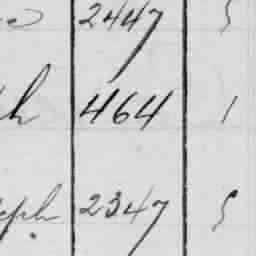 2447 5
h 464 1
eph 2347 5